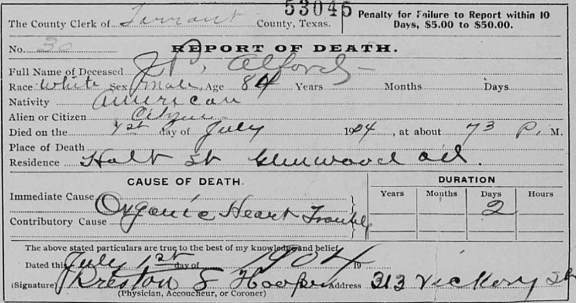 53045
The County Clerk of Tarrant County, Texas.
Penalty for Failure to Report within 10 Days, $5.00 to $50.00.
No. 30
REPORT OF DEATH.
Full Name of Deceased J.P. Alford
Race White Sex Male Age 84 Years Months Days
Nativity American
Alien or Citizen Citizen
Died on the 1st day of July 1904, at about P. M.
Place of Death
Residence Holt St Glenwood ad.
CAUSE OF DEATH.
DURATION
Years Months Days Hours
Immediate Cause
Organic Heart Trouble
2
Contributory Cause
The above stated particulars are true to the best of my knowledge and belief
Dated this July 1st day of 1904 19
(Signature) Preston S Hooper Address 313 Vickery St
(Physician, Accoucheur, or Coroner)